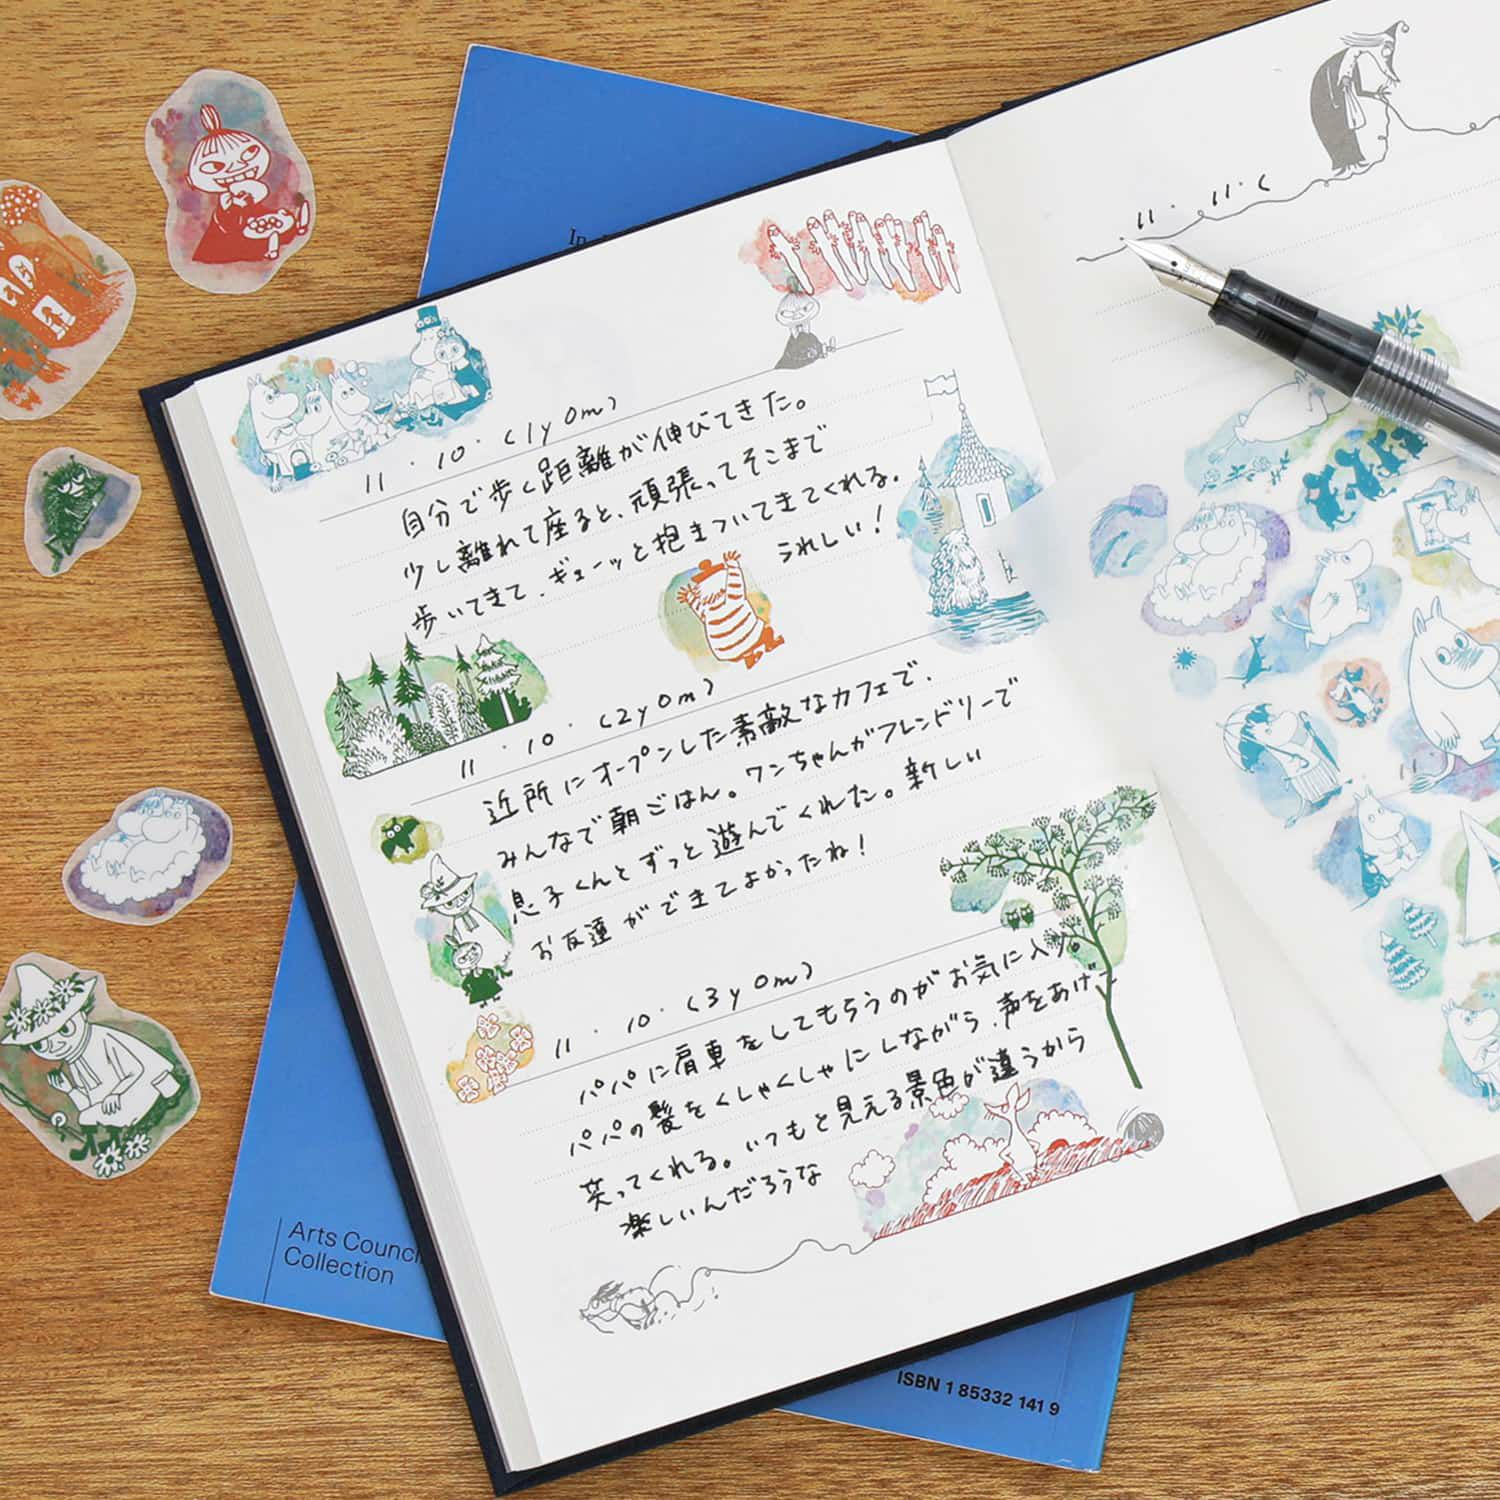 11・10・(1y0m)
自分で歩く距離が伸びてきた。
少し離れて座ると、頑張ってそこまで
歩いてきて、ギューッと抱きついてきてくれる。
うれしい！
11・10・(2y0m)
近所にオープンした素敵なカフェで、
みんなで朝ごはん。ワンちゃんがフレンドリーで
息子くんとずっと遊んでくれた。新しい
お友達ができてよかったね！
11・10・(3y0m)
パパに肩車をしてもらうのがお気に入り。
パパの髪をくしゃくしゃにしながら、声をあげて
笑ってくれる。いつもと見える景色が違うから
楽しいんだろうな
11・11・(
Arts Council
Collection
ISBN 1 85332 141 9